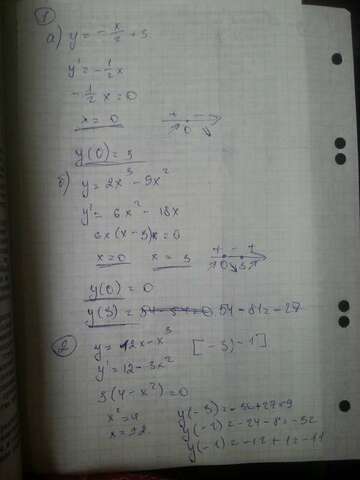 1
а) y = -x/2 + 3
y' = -1/2x
-1/2x = 0
x = 0 + - 0
y(0) = 3
б) y = 2x³ - 9x²
y' = 6x² - 18x
6x(x - 3) = 0
x = 0 x = 3 + - + 0 3
y(0) = 0
y(3) = 54 - 54 = 0 54 - 81 = -27
2 y = 12x - x³ [-3; -1]
y' = 12 - 3x²
3(4 - x²) = 0
x² = 4 y(-3) = -36 + 27 = 9
x = ±2 y(-2) = -24 - 8 = -32
y(-1) = -12 + 1 = -11